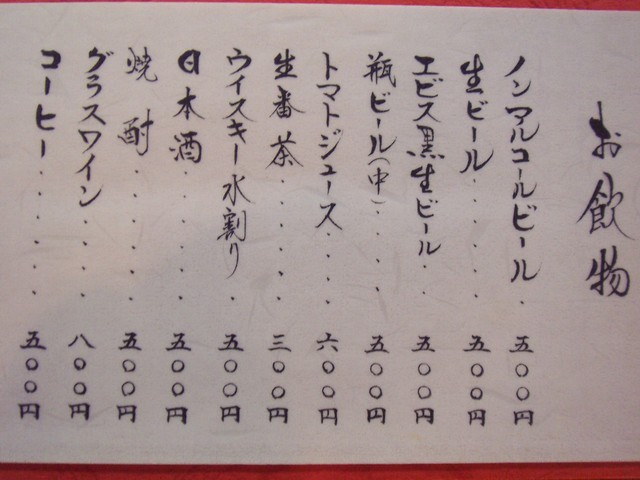 お飲物
ノンアルコールビール. 五〇〇円
生ビール...... 五〇〇円
エビス黒生ビール.. 五〇〇円
瓶ビール(中).... 五〇〇円
トマトジュース... 六〇〇円
生番茶...... 三〇〇円
ウイスキー水割り. 五〇〇円
日本酒...... 五〇〇円
焼酎....... 五〇〇円
グラスワイン.... 八〇〇円
コーヒー...... 五〇〇円